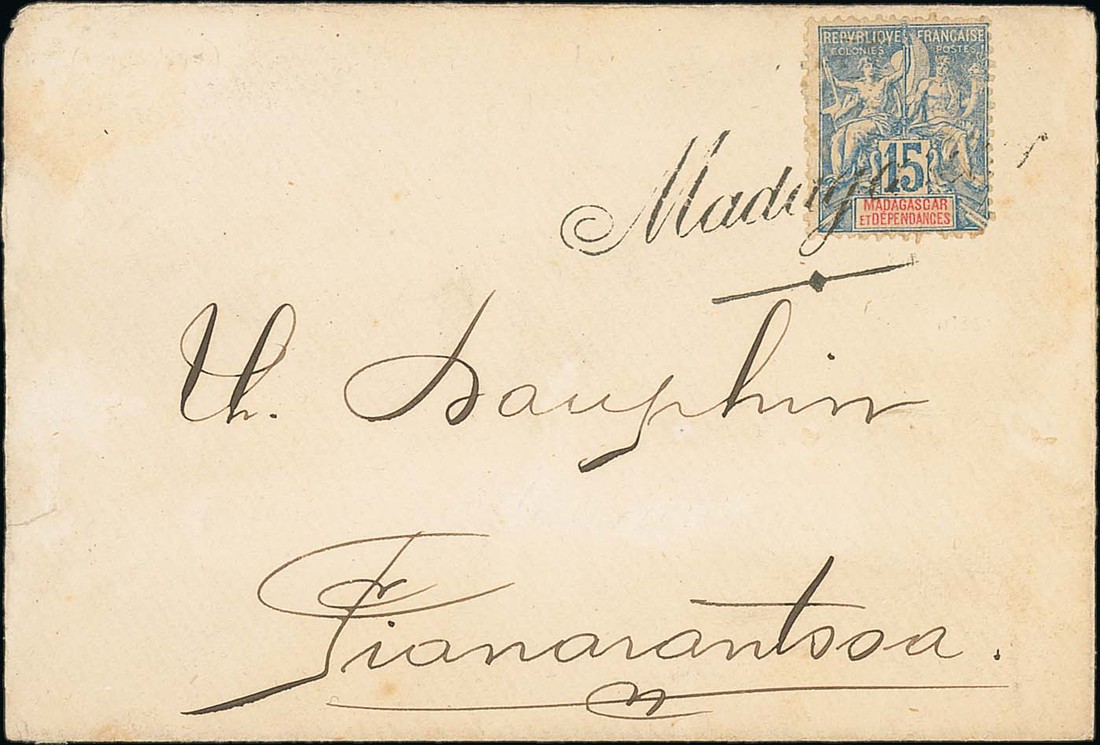 REPVBLIQVE FRANÇAISE
COLONIES POSTES
15
MADAGASCAR
ET DÉPENDANCES
Dauphin
Fianarantsoa.